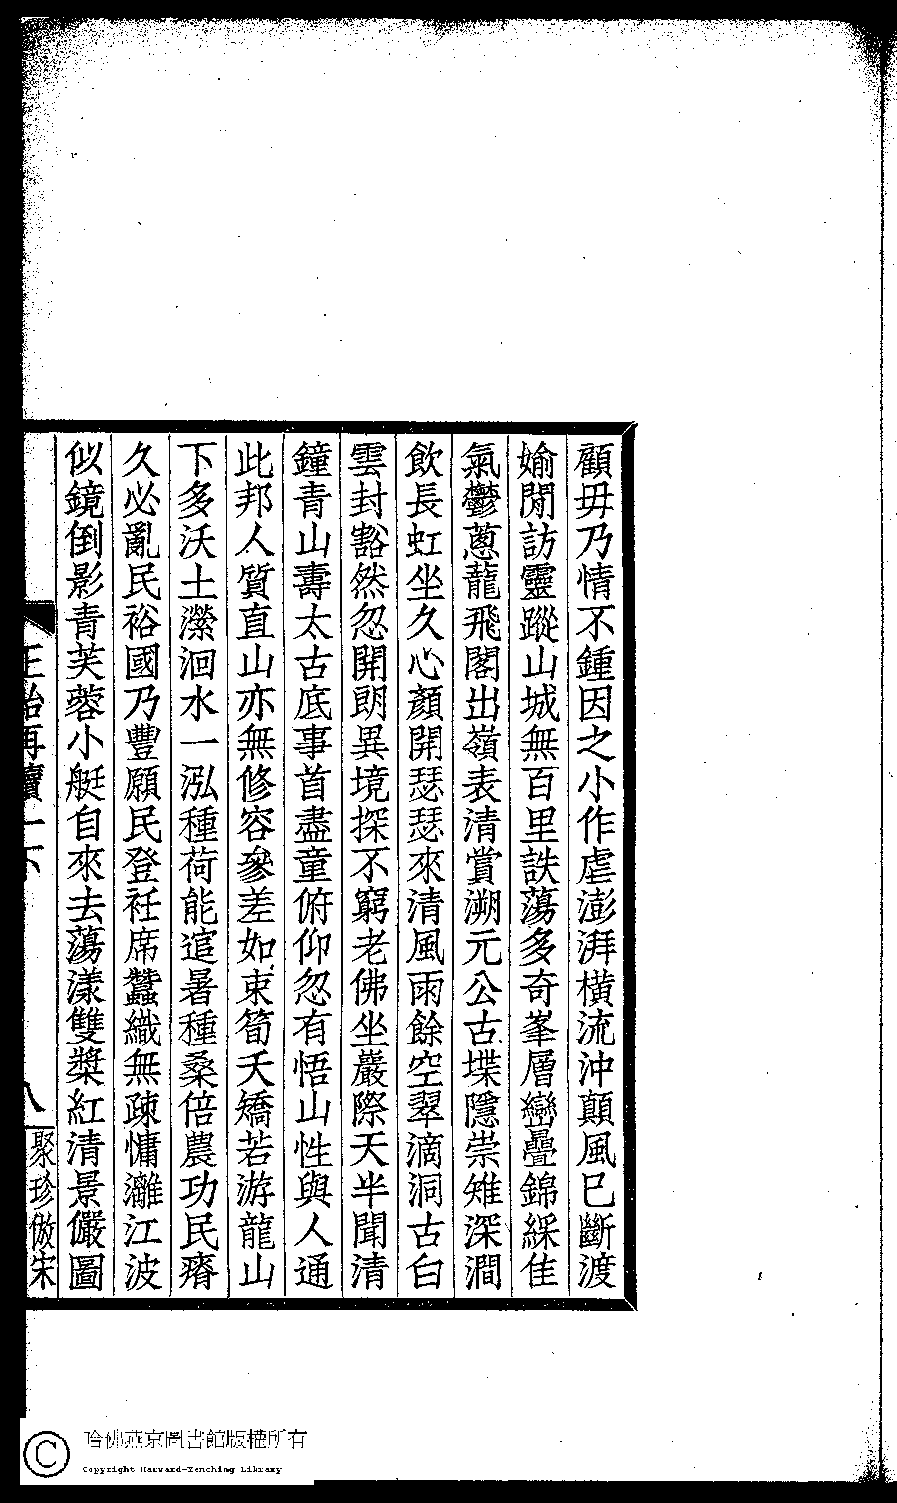 顧毋乃情不鍾因之小作虐澎湃橫流沖顛風已斷渡
媮閒訪靈蹤山城無百里詄蕩多奇峯層巒疊錦綵佳
氣鬱蔥蘢飛閣出嶺表清賞溯元公古堞隱崇雉深澗
飲長虹坐久心顏開瑟瑟來清風雨餘空翠滴洞古白
雲封豁然忽開朗異境探不窮老佛坐巖際天半聞清
鐘青山壽太古底事首盡童俯仰忽有悟山性與人通
此邦人質直山亦無修容參差如束筍夭矯若游龍山
下多沃土瀠洄水一泓種荷能逭暑種桑倍農功民瘠
久必亂民裕國乃豐願民登衽席蠶織無疎慵灕江波
似鏡倒影青芙蓉小艇自來去蕩漾雙槳紅清景儼圖
再續一下
八
聚珍倣宋
哈佛燕京圖書館版權所有
Copyright Harvard-Yenching Library